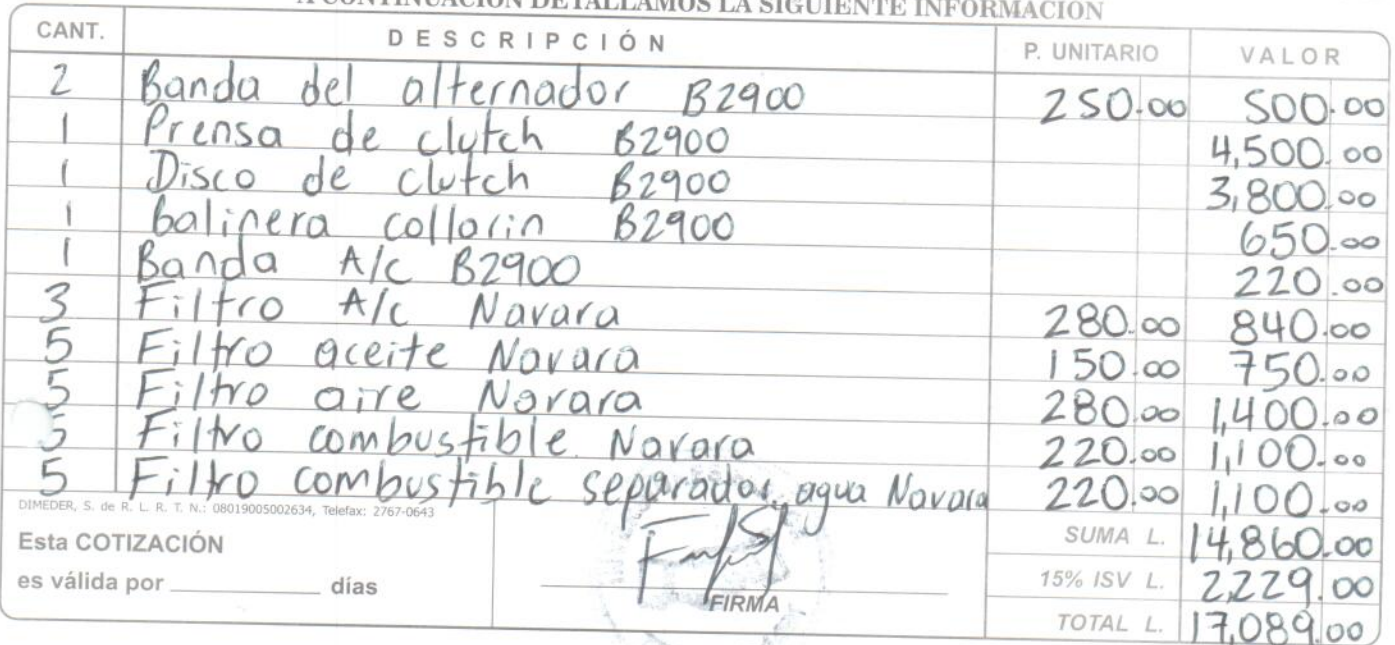 A CONTINUACIÓN DETALLAMOS LA SIGUIENTE INFORMACIÓN
CANT. DESCRIPCIÓN P. UNITARIO VALOR
2 Banda del alternador B2900 250.00 500.00
1 Prensa de clutch B2900 4,500.00
1 Disco de clutch B2900 3,800.00
1 balinera collarin B2900 650.00
1 Banda A/c B2900 220.00
3 Filtro A/c Navara 280.00 840.00
5 Filtro aceite Navara 150.00 750.00
5 Filtro aire Navara 280.00 1,400.00
5 Filtro combustible Navara 220.00 1,100.00
5 Filtro combustible separador agua Navara 220.00 1,100.00
DIMEDER, S. de R. L. R. T. N.: 08019005002634, Telefax: 2767-0643
SUMA L. 14,860.00
Esta COTIZACIÓN
es válida por ________ días
15% ISV L. 2,229.00
FIRMA
TOTAL L. 17,089.00